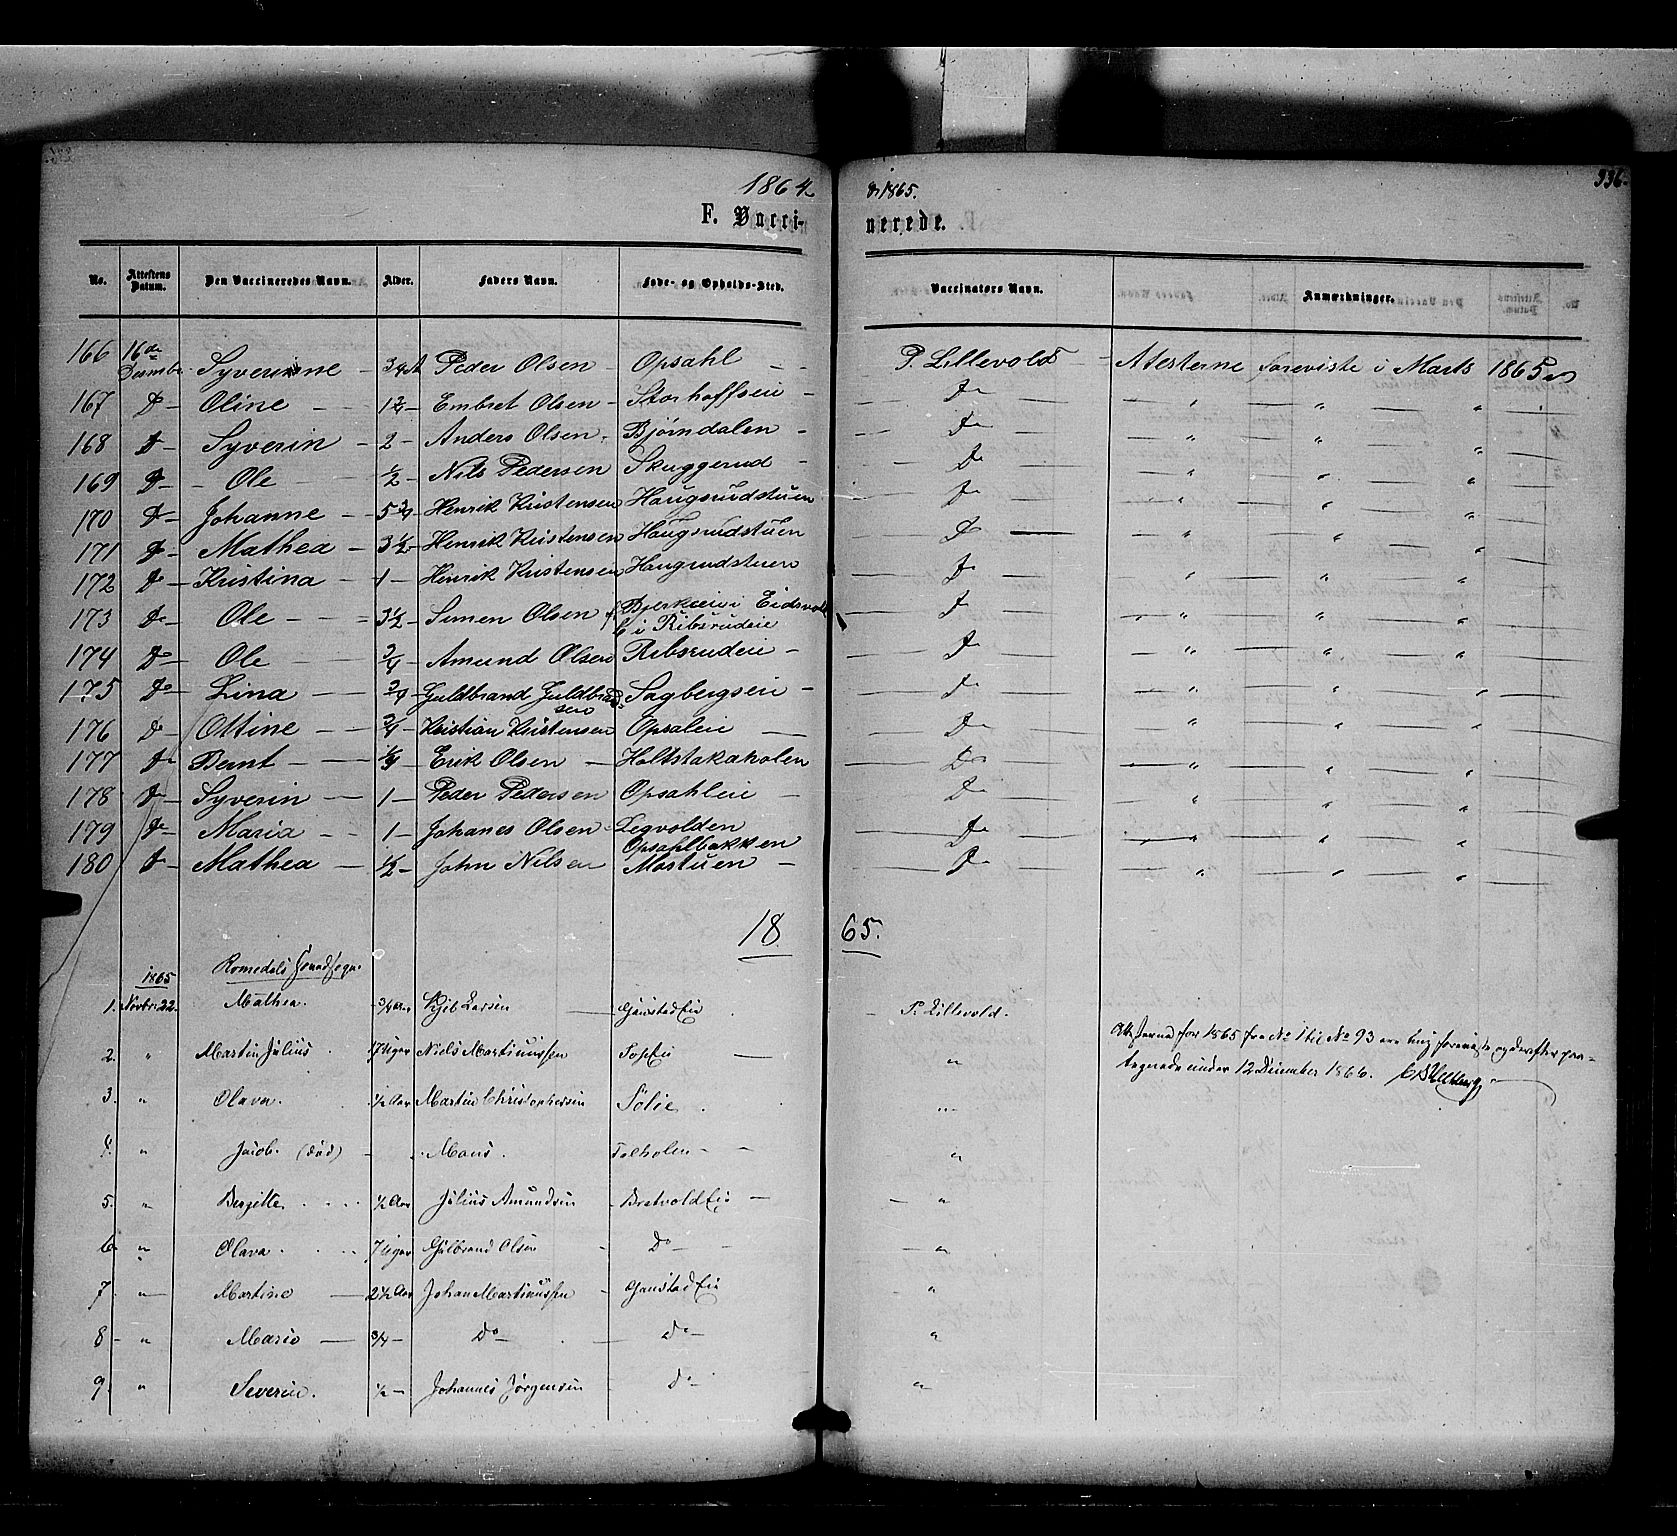 1864 & 1865. 336.
F. Vaccinerede.
No. Attestens Datum. Den Vaccineredes Navn. Alder. Faders Navn. Føde- og Opholds-Sted. Vaccinators Navn. Anmærkninger.
166 16de Decembr. Syverine 3/4 A Peder Olsen Opsahl P. Lillevold Atesterne foreviste i Marts 1865
167 Do Oline 1 3/4 Embret Olsen Storhoffseie Do " " "
168 Do Syverin 2 Anders Olsen Bjørndalen Do " " "
169 Do Ole 1/2 Nils Pedersen Skuggerud Do " " "
170 Do Johanne 5 3/4 Henrik Kristensen Haugsrudstuen Do " " "
171 Do Mathea 3 1/2 Henrik Kristensen Haugsrudstuen Do " " "
172 Do Kristina 1 Henrik Kristensen Haugrudstuen Do " " "
173 Do Ole 3 1/2 Simen Olsen f Bjerkeeie i Eidsvold
b i Ribsrudeie Do " " "
174 Do Ole 3/4 Amund Olsen Ribsrudeie Do " " "
175 Do Lina 3/4 Guldbrand Guldbrandsen Sagbergseie Do " " "
176 Do Ottine 3/4 Kristian Kristensen Opsaleie Do " " "
177 Do Bernt 1/4 Erik Olsen Holtstakaholen Do " " "
178 Do Syverin 1 Peder Pedersen Opsahleie Do " " "
179 Do Maria 1 Johanes Olsen Legvolden
Opsahlbakken Do " " "
180 Do Mathea 1/2 John Nilsen Mostuen Do " " "
1865.
1865 Romedals
1. Novbr. 22. Mathea. 3/4 Aar Larsen Gaustad Eie P. Lillevold.
for 1865 fra No 1 til No 93 ere mig foreviste og derefter
under 12 December 1866.
2. " Martin Julius 17 Uger Niels Martinussen "
3. " Olava. 1/2 Aar Martin Christophersen Sölie. "
4. " Jacob. (död) Mons. "
5. " Bergitte. 1/2 Aar Julius Amundsen Bretvold Eie "
6. " Olava. 7 Uger Gulbrand Olsen Do "
7 " Martine 2 1/2 Aar Johan Martinussen Gaustad Eie "
8 " Marie 3/4 Do Do "
9. " Severin. 1/2 Johannes Jörgensen Do "